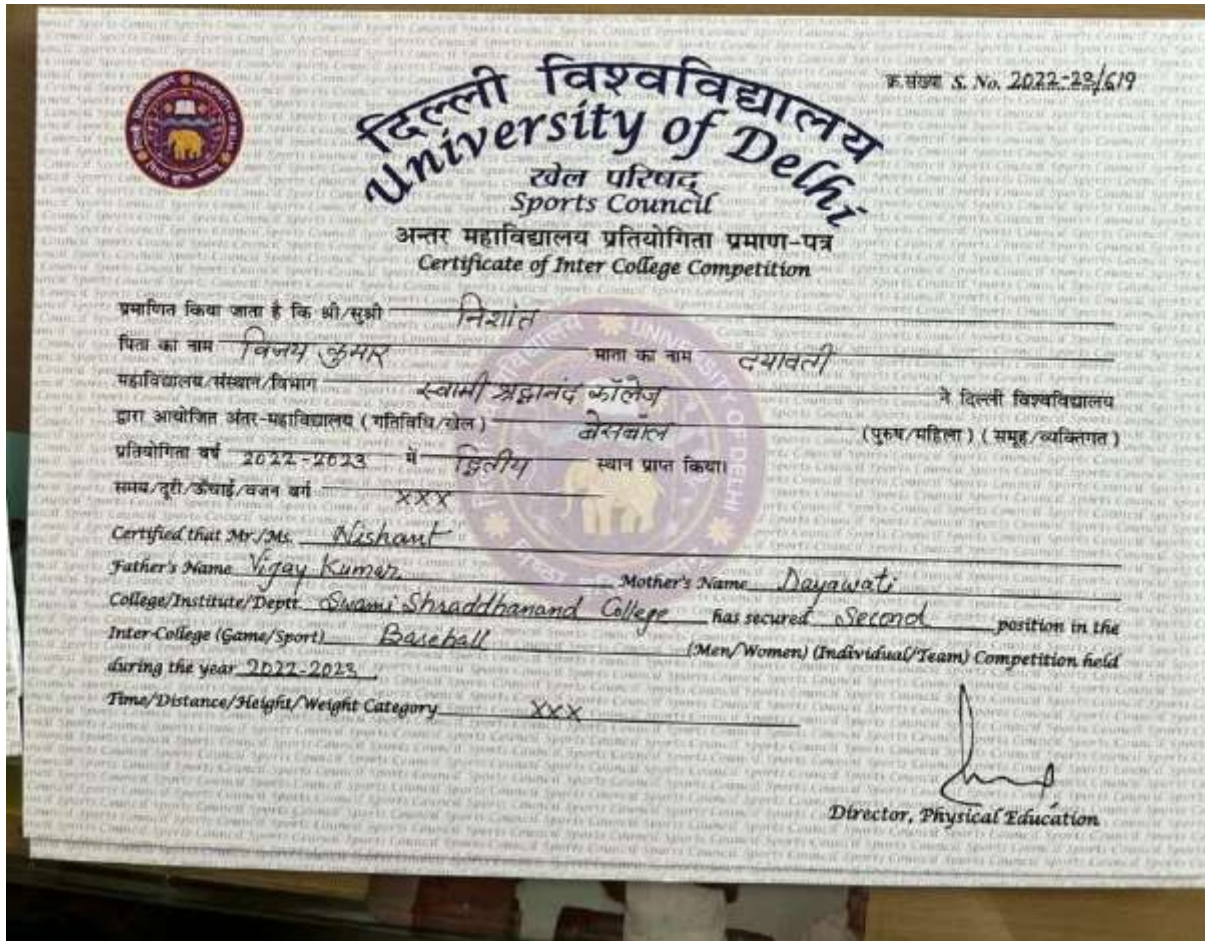 क्र.संख्या S. No. 2022-23/619
दिल्ली विश्वविद्यालय
University of Delhi
खेल परिषद्
Sports Council
अन्तर महाविद्यालय प्रतियोगिता प्रमाण-पत्र
Certificate of Inter College Competition
प्रमाणित किया जाता है कि श्री/सुश्री निशांत
पिता का नाम विजय कुमार माता का नाम दयावती
महाविद्यालय/संस्थान/विभाग स्वामी श्रद्धानंद कॉलेज ने दिल्ली विश्वविद्यालय
द्वारा आयोजित अंतर-महाविद्यालय (गतिविधि/खेल) बेसबॉल (पुरुष/महिला) (समूह/व्यक्तिगत)
प्रतियोगिता वर्ष 2022-2023 में द्वितीय स्थान प्राप्त किया।
समय/दूरी/ऊँचाई/वजन वर्ग xxx
Certified that Mr./Ms. Nishant
Father's Name Vijay Kumar Mother's Name Dayawati
College/Institute/Deptt. Swami Shraddhanand College has secured Second position in the
Inter-College (Game/Sport) Baseball (Men/Women) (Individual/Team) Competition held
during the year 2022-2023
Time/Distance/Height/Weight Category xxx
Director, Physical Education